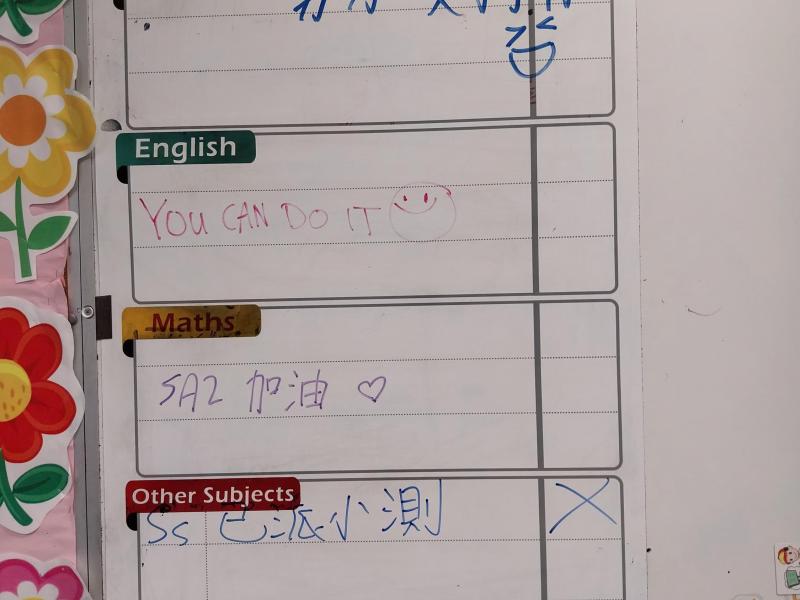 English
YOU CAN DO IT
Maths
SA2 加油 ♡
Other Subjects
SS 已派小測